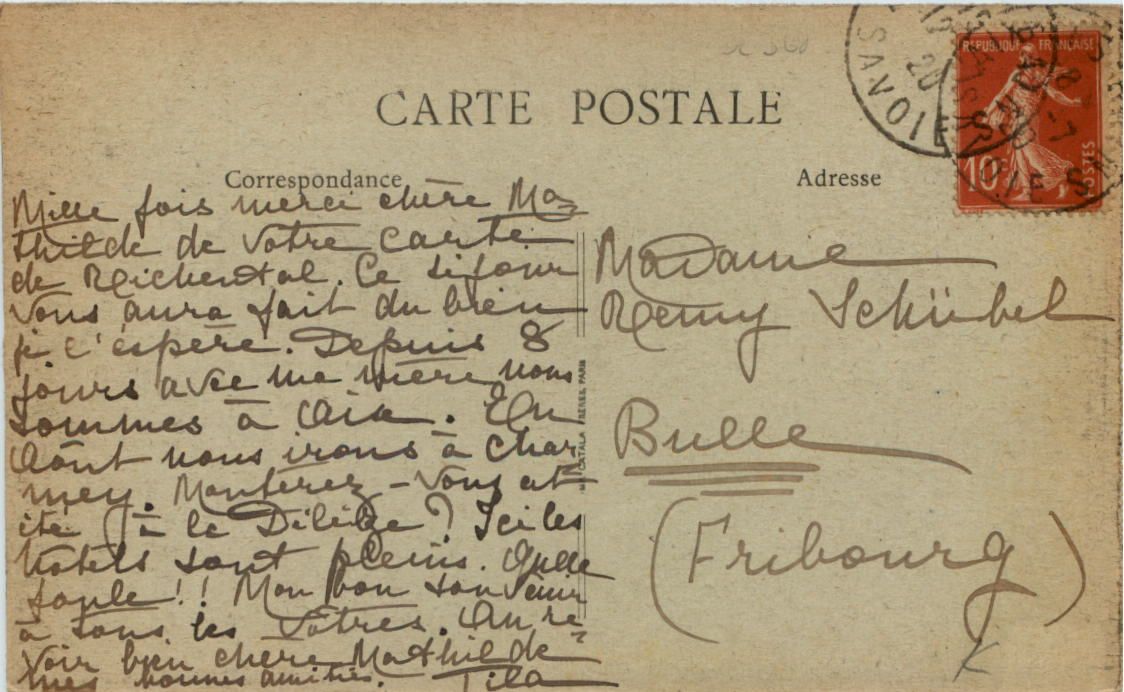 CARTE POSTALE
Correspondance
Adresse
SAVOIE
20
8-7
REPUBLIQUE FRANÇAISE
10c
POSTES
Mille fois merci chère Ma-
thilde de votre carte
de Reichenthal. Ce séjour
vous aura fait du bien
je l'espère. Depuis 8
jours avec ma mère nous
sommes à Aix. En
Août nous irons à Char-
mey. Monterez-vous cet
été (à le ) ? Ici les
hôtels sont pleins. Quelle
foule!! Mon bon souvenir
à tous les vôtres. Au re-
voir bien chère Mathilde
mes bonnes amitiés.
CATALA FRÈRES, PARIS
Madame
Remy Schübel
Bulle
(Fribourg)